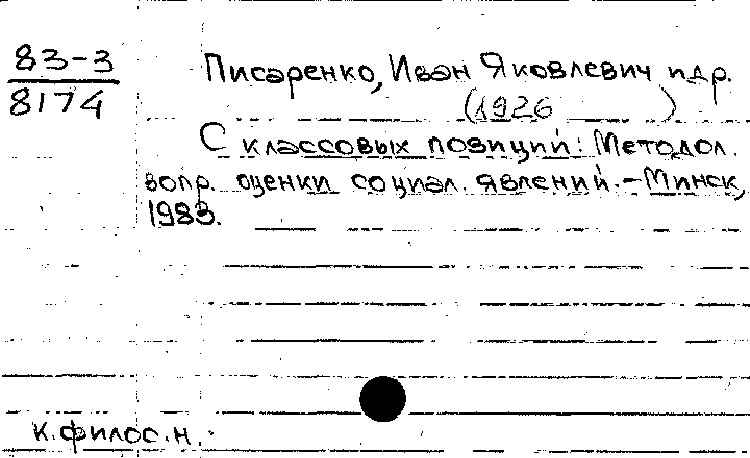 83-3
8174
Писаренко, Иван Яковлевич и др.
(1926 )
С классовых позиций: Методол.
вопр. оценки социал. явлений.-Минск,
1983.
к.филос.н.